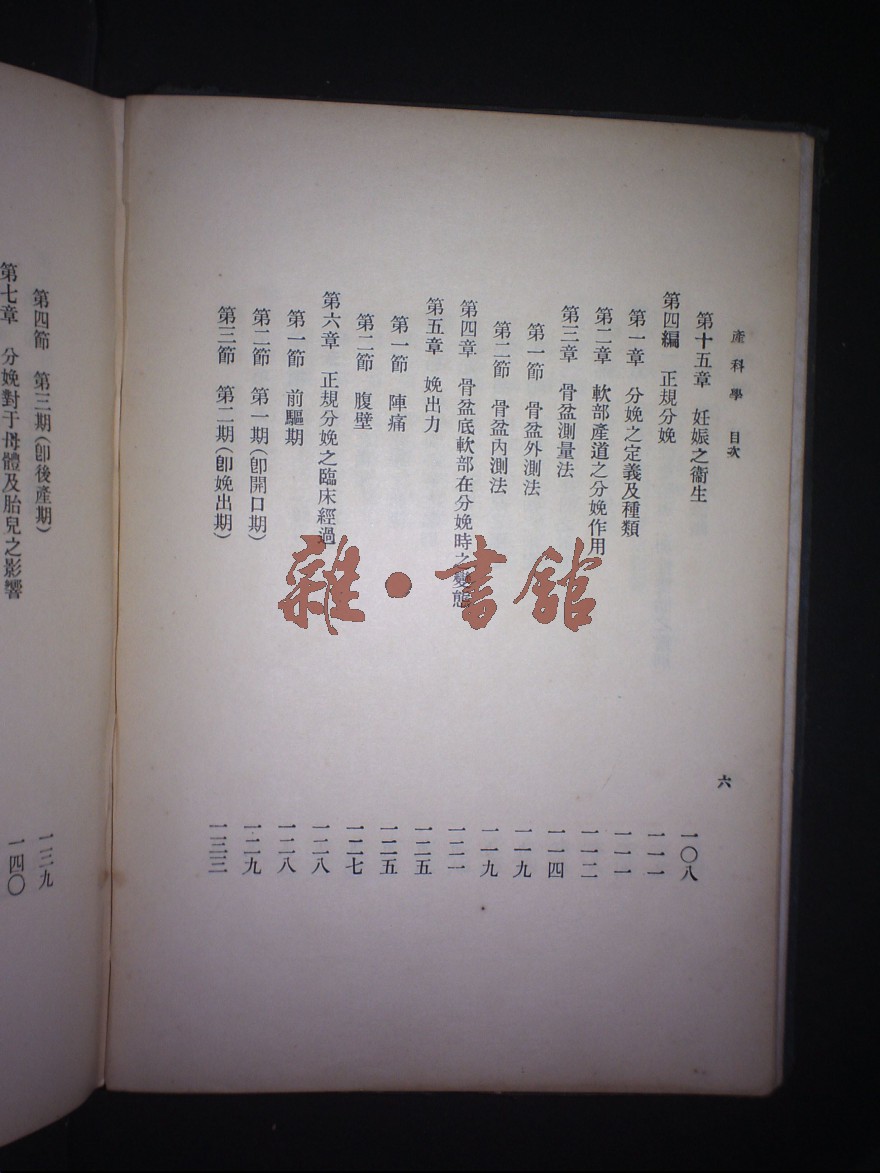 產科學 目次 六
第十五章 妊娠之衞生 一〇八
第四編 正規分娩 一一一
第一章 分娩之定義及種類 一一一
第二章 軟部產道之分娩作用 一一二
第三章 骨盆測量法 一一四
第一節 骨盆外測法 一一九
第二節 骨盆內測法 一一九
第四章 骨盆底軟部在分娩時之變態 一二一
第五章 娩出力 一二五
第一節 陣痛 一二五
第二節 腹壁 一二七
第六章 正規分娩之臨床經過 一二八
第一節 前驅期 一二八
第二節 第一期(卽開口期) 一二九
第三節 第二期(卽娩出期) 一三三
第四節 第三期(卽後產期) 一三九
第七章 分娩對于母體及胎兒之影響 一四〇
雜·書館